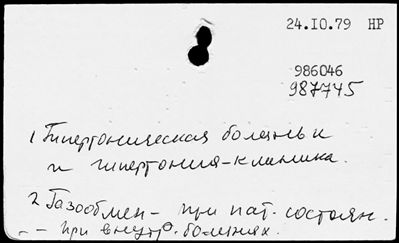 24.IO.79 НР
986046
987745
1 Гипертоническая болезнь и
и гипертония-клиника.
2 Газообмен - при пат. состоян.
- - при внутр. болезнях.